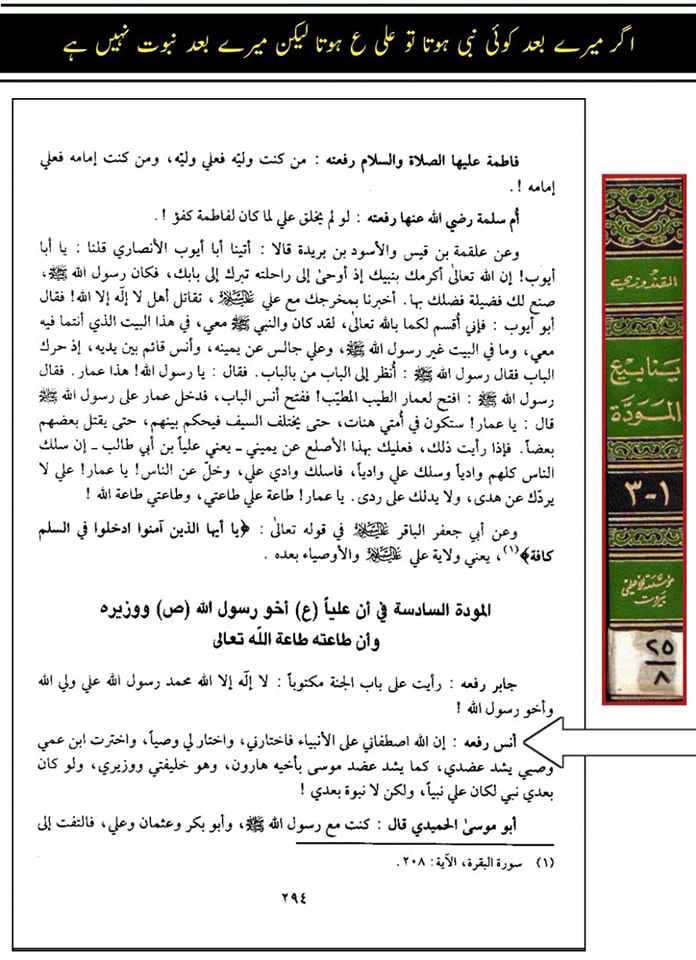 اگر میرے بعد کوئی نبی ہوتا تو علی ع ہوتا لیکن میرے بعد نبوت نہیں ہے
فاطمة عليها الصلاة والسلام رفعته : من كنت وليّه فعلي وليّه، ومن كنت إمامه فعلي
إمامه !.
أم سلمة رضي الله عنها رفعته : لو لم يخلق علي لما كان لفاطمة كفؤ !.
وعن علقمة بن قيس والأسود بن بريدة قالا : أتينا أبا أيوب الأنصاري قلنا : يا أبا
أيوب! إن الله تعالىٰ أكرمك بنبيك إذ أوحىٰ إلى راحلته تبرك إلى بابك، فكان رسول الله ﷺ،
صنع لك فضيلة فضلك بها. أخبرنا بمخرجك مع علي عليه السلام، تقاتل أهل لا إلٰه إلا الله! فقال
أبو أيوب : فإني أقسم لكما بالله تعالىٰ، لقد كان والنبي ﷺ معي، في هذا البيت الذي أنتما فيه
معي، وما في البيت غير رسول الله ﷺ، وعلي جالس عن يمينه، وأنس قائم بين يديه، إذ حرك
الباب فقال رسول الله ﷺ : أُنظر إلى الباب من بالباب. فقال : يا رسول الله! هذا عمار. فقال
رسول الله ﷺ : افتح لعمار الطيب المطيّب! ففتح أنس الباب، فدخل عمار على رسول الله ﷺ
قال : يا عمار! ستكون في أمتي هنات، حتى يختلف السيف فيحكم بينهم، حتى يقتل بعضهم
بعضاً. فإذا رأيت ذلك، فعليك بهذا الأصلع عن يميني ـ يعني علياً بن أبي طالب ـ إن سلك
الناس كلهم وادياً وسلك علي وادياً، فاسلك وادي علي، وخلّ عن الناس! يا عمار! علي لا
يردّك عن هدى، ولا يدلك على ردى. يا عمار! طاعة علي طاعتي، وطاعتي طاعة الله !
وعن أبي جعفر الباقر عليه السلام في قوله تعالىٰ : ﴿يا أيها الذين آمنوا ادخلوا في السلم
كافة﴾(١)، يعني ولاية علي عليه السلام والأوصياء بعده .
المودة السادسة في أن علياً (ع) أخو رسول الله (ص) ووزيره
وأن طاعته طاعة اللّه تعالى
جابر رفعه : رأيت على باب الجنة مكتوباً : لا إلٰه إلا الله محمد رسول الله علي ولي الله
وأخو رسول الله !
أنس رفعه : إن الله اصطفاني على الأنبياء فاختارني، واختار لي وصياً، واخترت ابن عمي
وصيي يشد عضدي، كما يشد عضد موسى بأخيه هارون، وهو خليفتي ووزيري، ولو كان
بعدي نبي لكان علي نبياً، ولكن لا نبوة بعدي !
أبو موسىٰ الحميدي قال : كنت مع رسول الله ﷺ، وأبو بكر وعثمان وعلي، فالتفت إلى
(١) سورة البقرة، الآية: ٢٠٨.
٢٩٤
القندوزي
ينابيع
المودة
١-٣
مؤسسة الأعلمي
بيروت
٢٥
٨